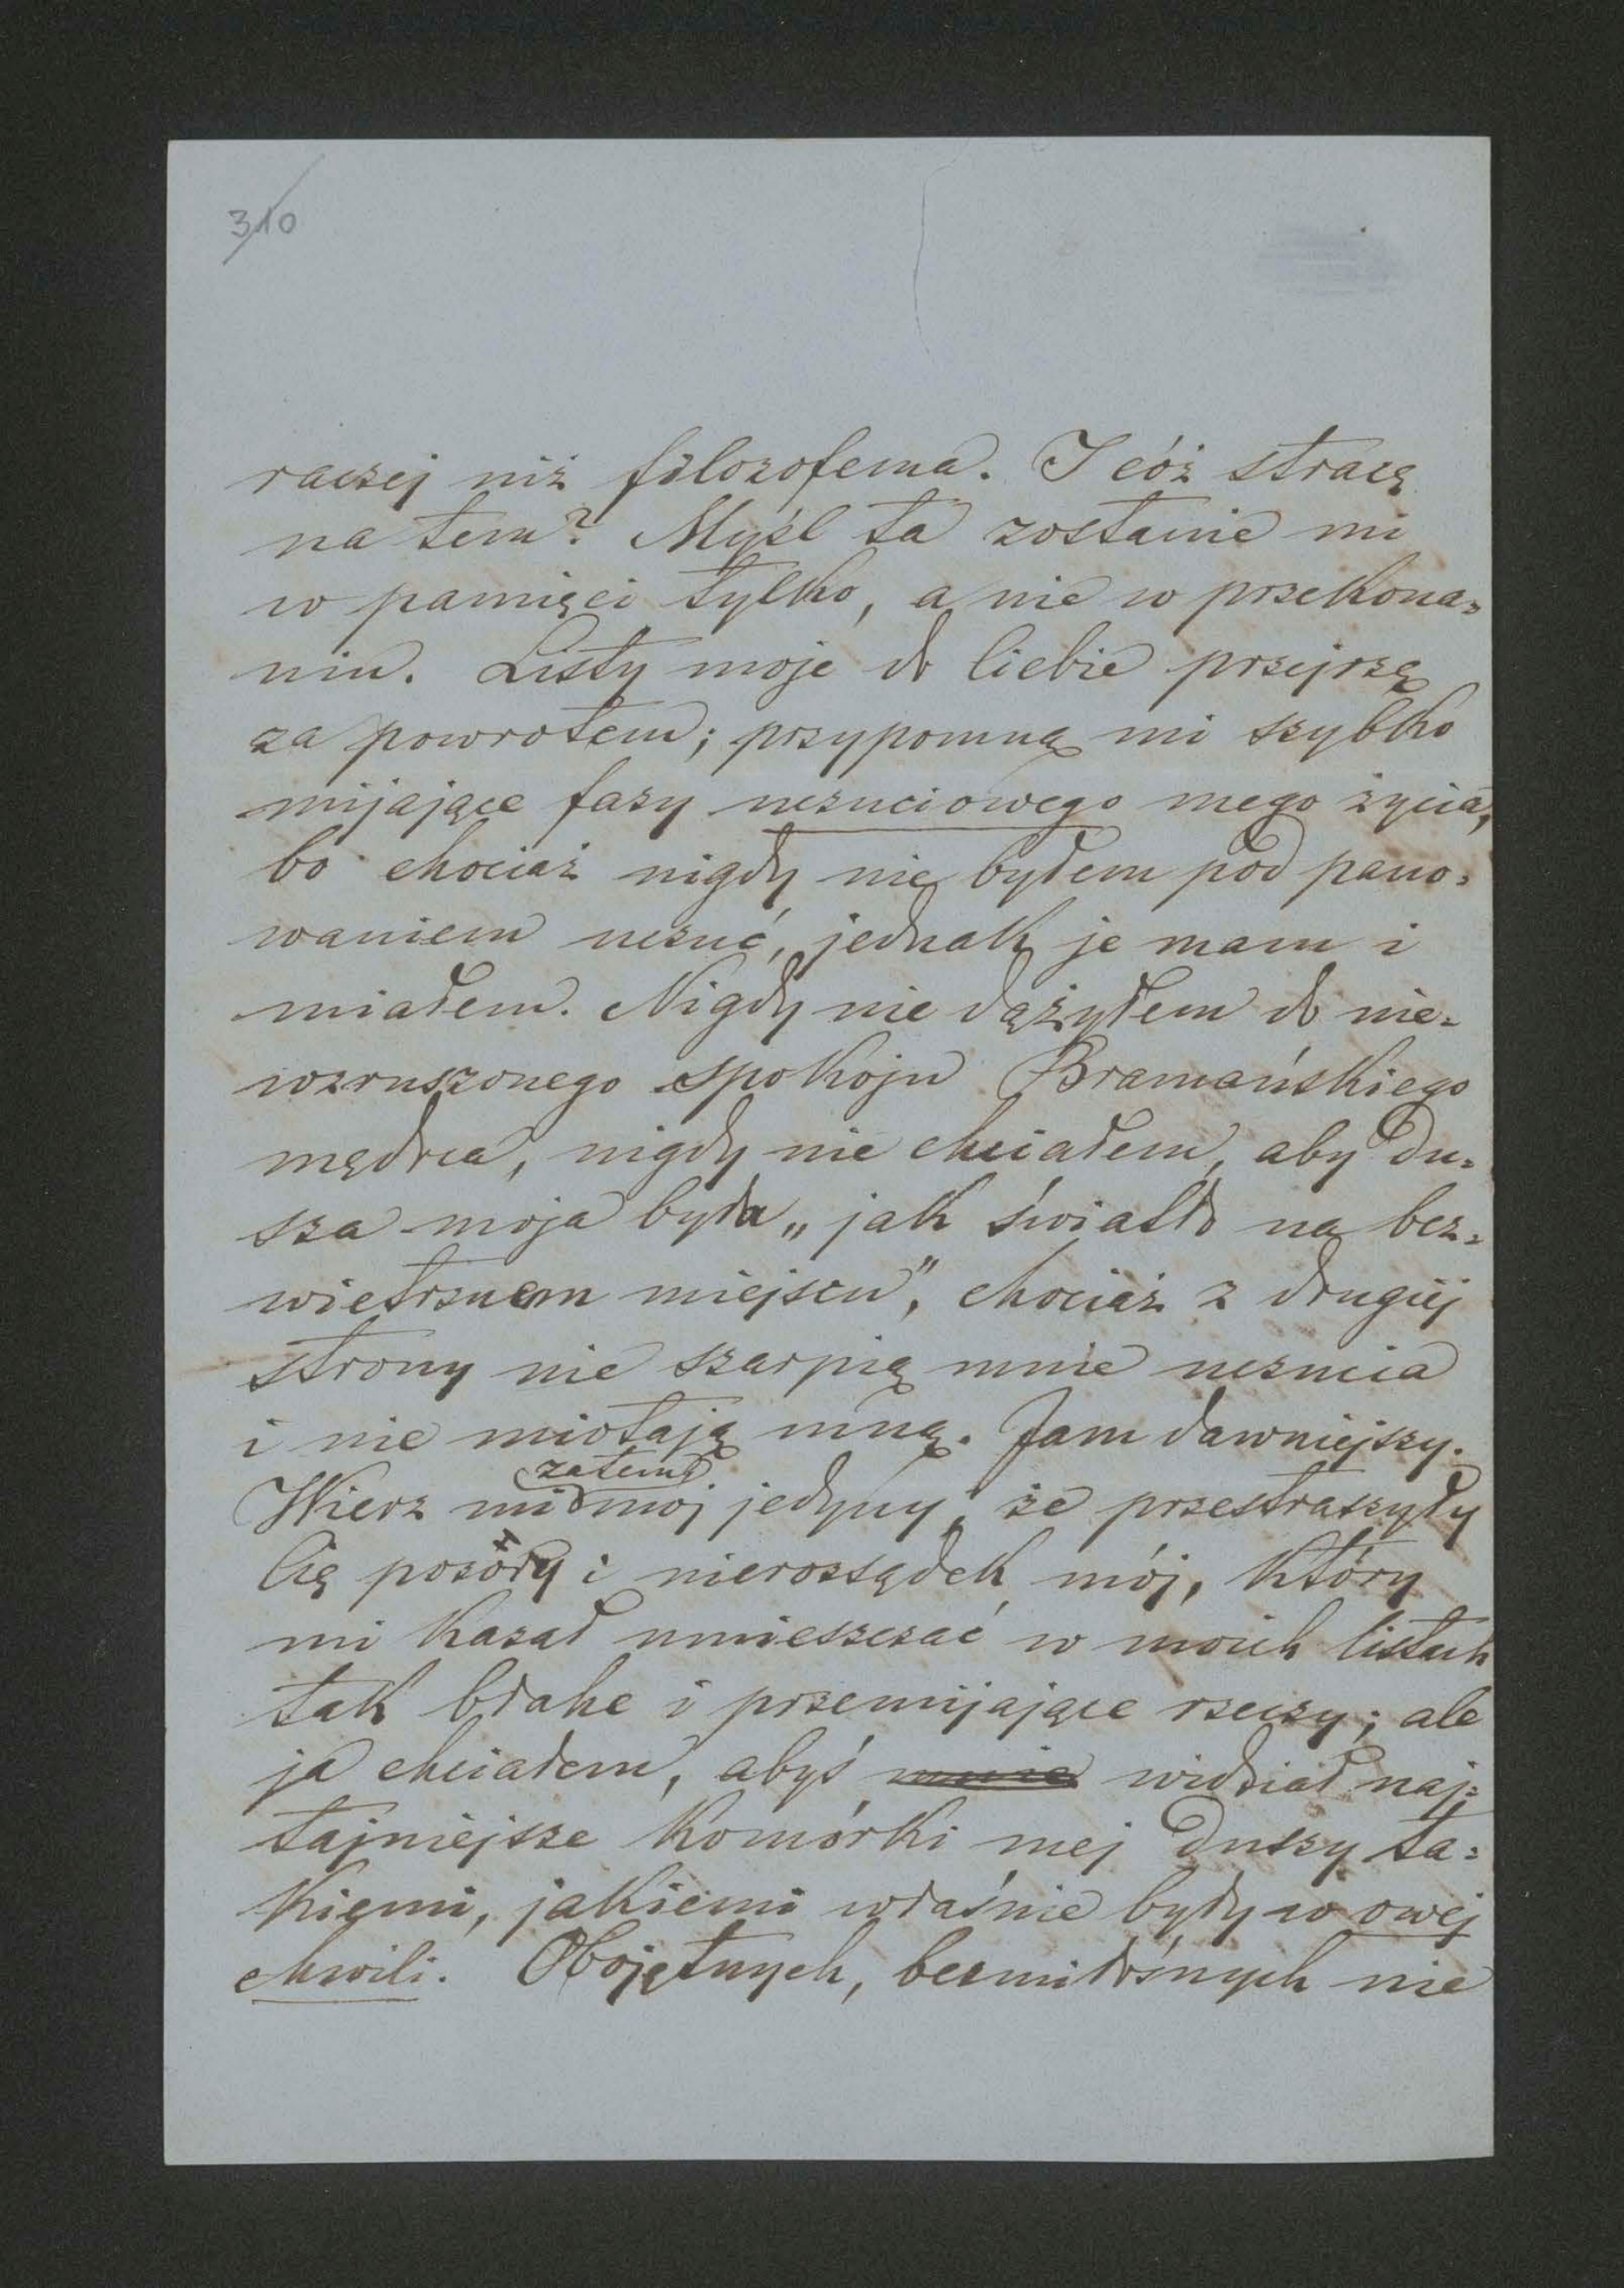 310
raczej niż filozofema. I cóż stracę
na tem? Myśl ta zostanie mi
w pamięci tylko, a nie w przekona=
niu. Listy moje do Ciebie przejrzę
za powrotem; przypomną mi szybko
mijające fazy uczuciowego mego życia,
bo chociaż nigdy nie byłem pod pano=
waniem uczuć, jednak je mam i
miałem. Nigdy nie dążyłem do nie=
wzruszonego spokoju Bramańskiego
mędrca, nigdy nie chciałem, aby du=
sza moja była „jak światło na bez=
wietrznem miejscu", chociaż z drugiej
strony nie szarpią mnie uczucia
i nie miotają mną. Jam dawniejszy.
zatem
Wierz mi mój jedyny, że przestraszyły
Cię pozory i nierozsądek mój, który
mi kazał umieszczać w moich listach
tak błahe i przemijające rzeczy; ale
ja chciałem, abyś mnie widział naj=
tajniejsze komórki mej duszy ta=
kiemi, jakiemi właśnie były w owej
chwili. Obojętnych, bezmiłośnych nie